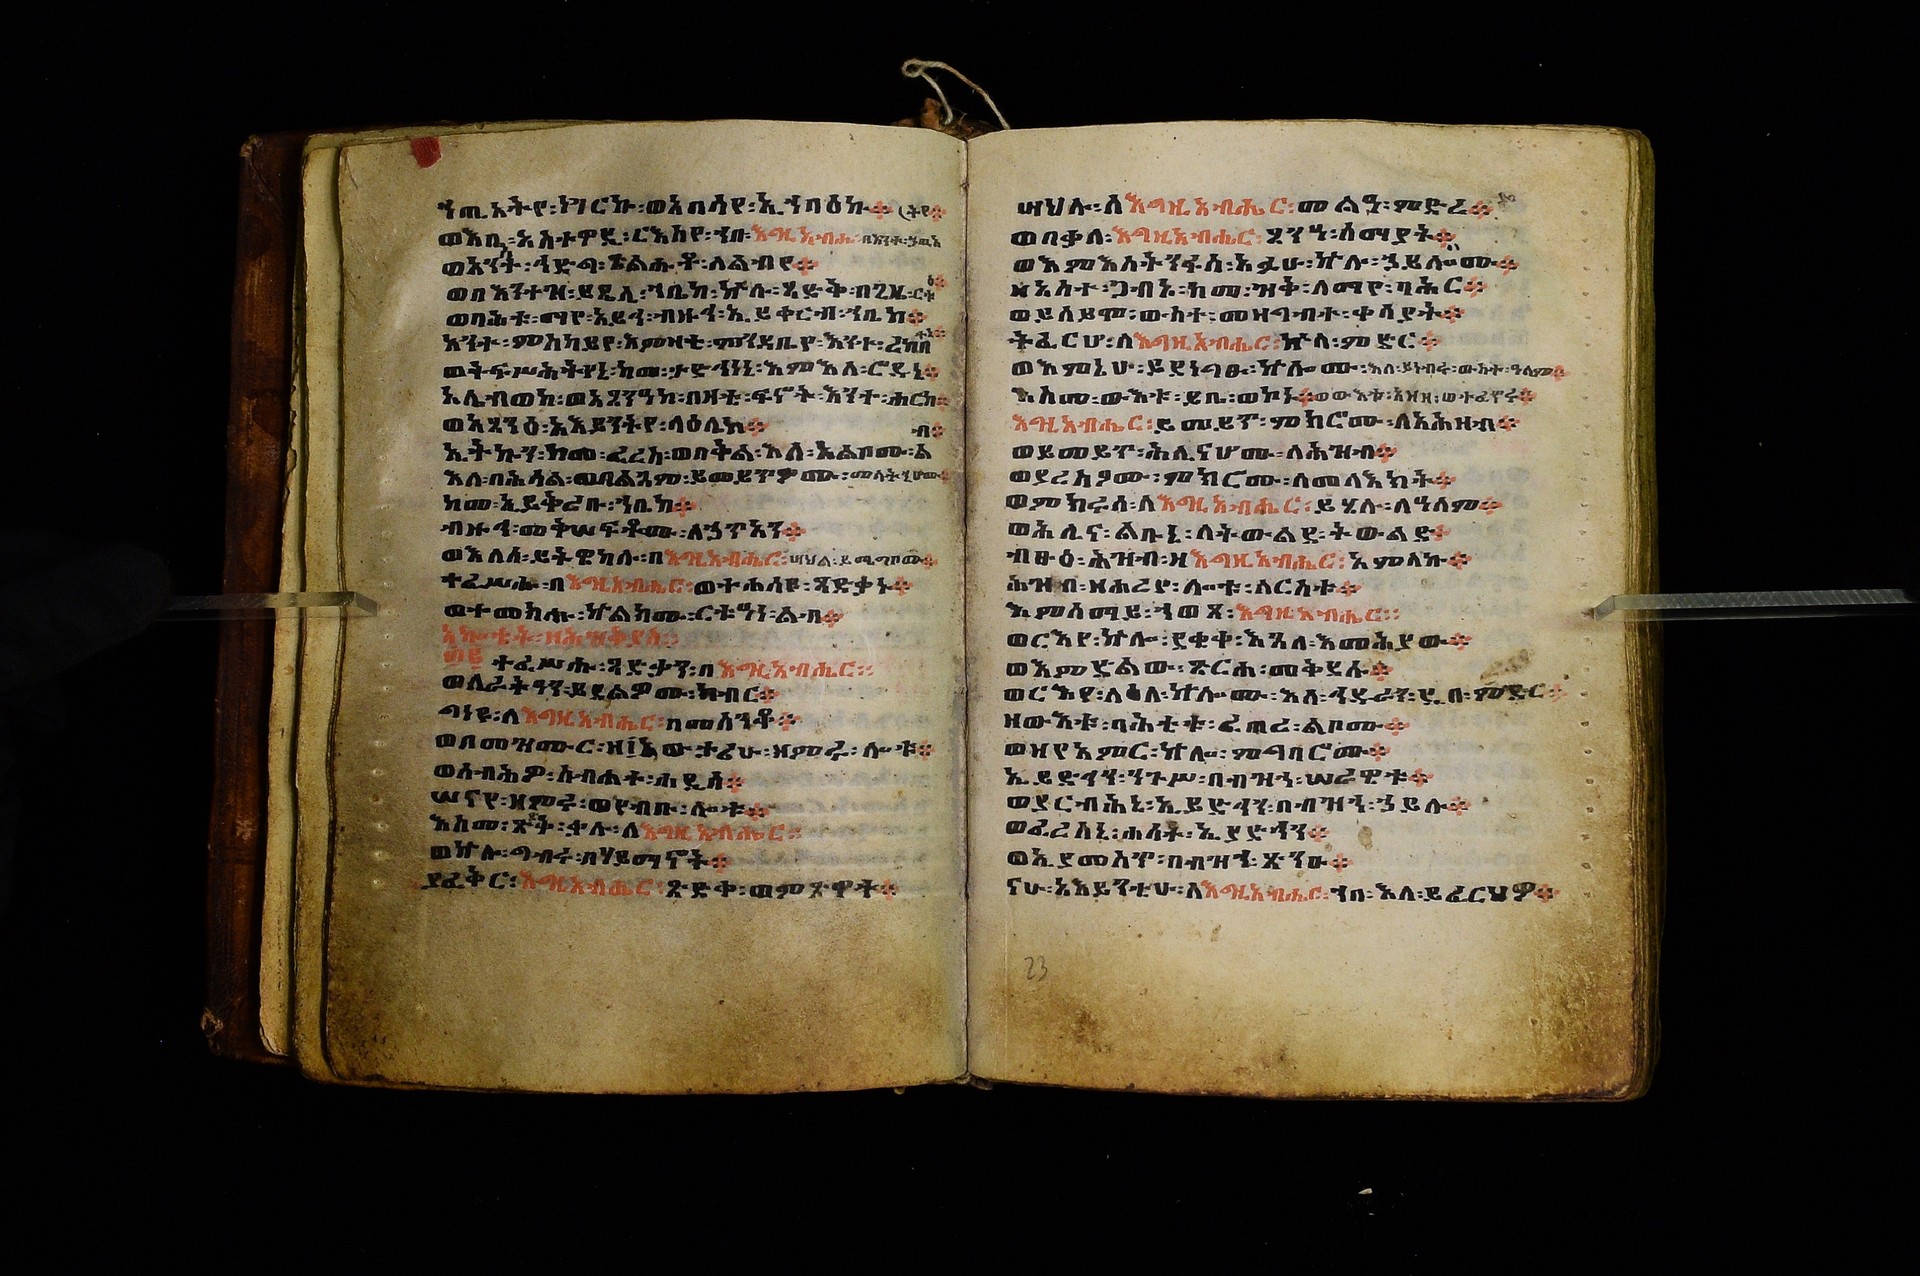 ኀጢአትየ፡ነገርኩ፡ወአበሳየ፡ኢኀባዕኩ፨
ወእቤ፡አስተዋዲ፡ርእስየ፡ኀበ፡እግዚአብሔ፡በእንተ፡
ወአንተ፡ኅድግ፡ጽልሑቶ፡ለልብየ፨
ወበእንተዝ፡ይጼሊ፡ኀቤከ፡ኵሉ፡ጻድቅ፡በጊዜ፡ርቱዕ፨
ወባሕቱ፡ማየ፡አይኅ፡ብዙኅ፡ኢይቀርብ፡ኀቤከ፨
አንተ፡ምስካይየ፡እምዛቲ፡ምንዳቤየ፡እንተ፡ረከበተኒ፨
ወትፍሥሕትየኒ፡ከመ፡ታድኅነኒ፡እምእለ፡ሮዱኒ፨
አሌብወከ፡ወአጸንዓከ፡በዛቲ፡ፍኖት፡እንተ፡ሖርከ፨
ወአጸንዕ፡አእይንትየ፡ላዕሌከ፨
ኢትኩን፡ከመ፡ፈረስ፡ወበቅል፡እለ፡አልቦሙ፡ልብ፨
እለ፡በሕሳል፡ወበልጓም፡ይመይጥዎሙ፡መላትሒሆሙ፨
ከመ፡ኢይቅረቡ፡ኀቤከ፨
ብዙኅ፡መቅሠፍቶሙ፡ለኃጥአን፨
ወእለሰ፡ይትዌከሉ፡በእግዚአብሔር፡ሣህል፡ይሜግቦሙ፨
ተፈሥሑ፡በእግዚአብሔር፡ወተሐሰዩ፡ጻድቃነ፨
ወተመክሑ፡ኵልክሙ፡ርቱዓነ፡ልብ፨
አኰቴት፡ዘሕዝቅያስ፡፡
፴፪ ተፈሥሑ፡ጻድቃን፡በእግዚአብሔር፡፡
ወለራትዓን፡ይደልዎሙ፡ክብር፨
ግነዩ፡ለእግዚአብሔር፡በመሰንቆ፨
ወበመዝሙር፡ዘ፲አውታሪሁ፡ዘምሩ፡ሎቱ፨
ወሰብሕዎ፡ስብሐተ፡ሐዲሰ፨
ሠናየ፡ዘምሩ፡ወየብቡ፡ሎቱ፨
እስመ፡ጽድቅ፡ቃሉ፡ለእግዚአብሔር፡፡
ወኵሉ፡ግብሩ፡በሃይማኖት፨
ያፈቅር፡እግዚአብሔር፡ጽድቀ፡ወምጽዋተ፨
ሣህሉ፡ለእግዚአብሔር፡መልዓ፡ምድረ፨
ወበቃለ፡እግዚአብሔር፡ጸንዓ፡ሰማያት፨
ወእምእስትንፋሰ፡አፉሁ፡ኵሉ፡ኃይሎሙ፨
ዘአስተጋብኦ፡ከመ፡ዝቅ፡ለማየ፡ባሕር፨
ወይሰይሞ፡ውስተ፡መዝግብተ፡ቀላያት፨
ትፈርሆ፡ለእግዚአብሔር፡ኵላ፡ምድር፨
ወእምኔሁ፡ይደነግፁ፡ኵሎሙ፡እለ፡ይነብሩ፡ውስተ፡ዓለም፨
እስመ፡ውእቱ፡ይቤ፡ወኮኑ፨ወውእቱ፡አዘዘ፡ወተፈጥሩ፨
እግዚአብሔር፡ይመይጥ፡ምክሮሙ፡ለአሕዛብ፨
ወይመይጥ፡ሕሊናሆሙ፡ለሕዝብ፨
ወያረስዖሙ፡ምክሮሙ፡ለመላእክት፨
ወምክሩሰ፡ለእግዚአብሔር፡ይሄሉ፡ለዓለም፨
ወሕሊና፡ልቡኒ፡ለትውልደ፡ትውልድ፨
ብፁዕ፡ሕዝብ፡ዘእግዚአብሔር፡አምላኩ፨
ሕዝብ፡ዘሐረየ፡ሎቱ፡ለርስቱ፨
እምሰማይ፡ኀወጸ፡እግዚአብሔር፡፡
ወርእየ፡ኵሎ፡ደቂቀ፡እጓለ፡እመሕያው፨
ወእምድልው፡ጽርሐ፡መቅደሱ፨
ወርእየ፡ላዕለ፡ኵሎሙ፡እለ፡ኅዱራን፡ዲበ፡ምድር፨
ዘውእቱ፡ባሕቲቱ፡ፈጠረ፡ልቦሙ፨
ወዘየአምር፡ኵሎ፡ምግባሮሙ፨
ኢይድኅን፡ንጉሥ፡በብዝኀ፡ሠራዊቱ፨
ወያርብሕኒ፡ኢይድኅን፡በብዝኀ፡ኃይሉ፨
ወፈረስኒ፡ሐሳት፡ኢያድኅን፨
ወኢያመስጥ፡በብዝኀ፡ጽንዑ፨
ናሁ፡አእይንቲሁ፡ለእግዚአብሔር፡ኀበ፡እለ፡ይፈርህዎ፨
23